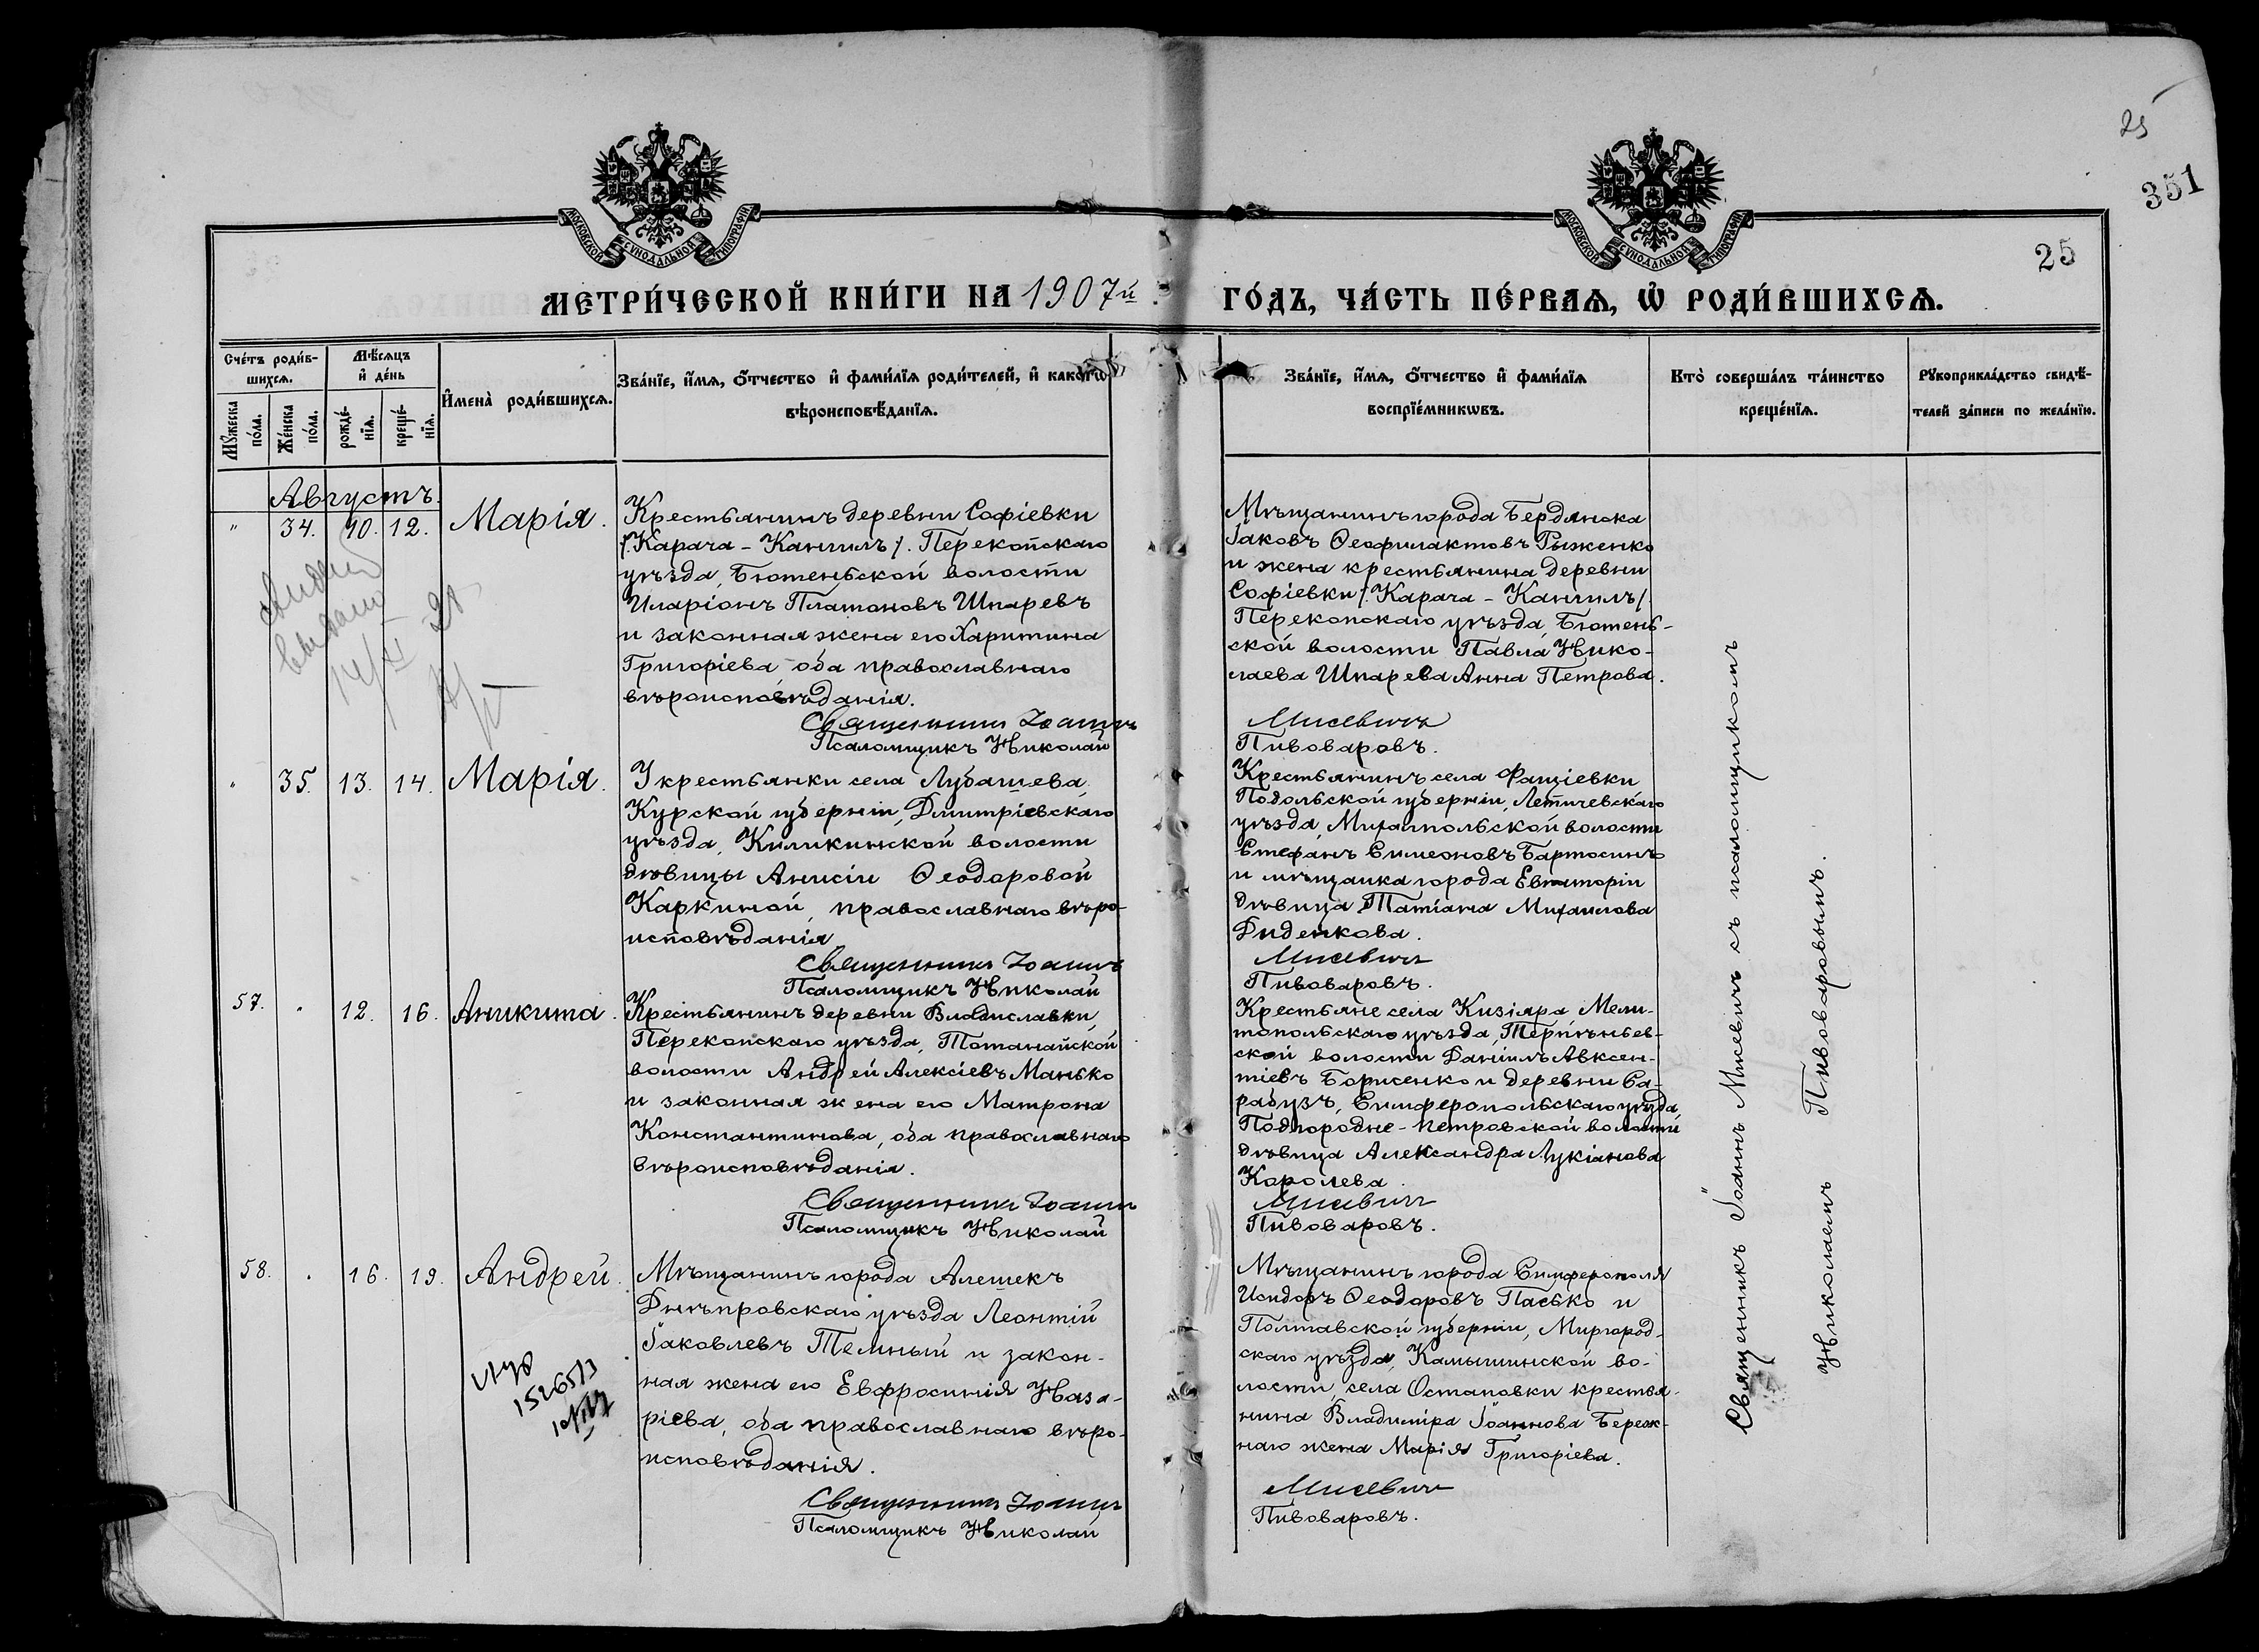 25
351
25
МОСКОВСКОЙ СѴНОДАЛЬНОЙ ТИПОГРАФІИ
МОСКОВСКОЙ СѴНОДАЛЬНОЙ ТИПОГРАФІИ
МЕТРИ́ЧЕСКОЙ КНИ́ГИ НА 1907й ГО́ДЪ, ЧА́СТЬ ПЕ́РВАѦ, Ѡ҆ РОДИ́ВШИХСѦ.
Сче́тъ роди́в-
шихсѧ.
Мѣ́сѧцъ
и҆ де́нь
Мꙋ́жеска
по́ла.
Же́нска
по́ла.
рожде́-
нїѧ.
креще́-
нїѧ.
И҆мена̀ роди́вшихсѧ.
Зва́нїе, и҆́мѧ, ѻ҆́тчество и҆ фами́лїѧ роди́телей, и҆ како́гѡ
вѣроисповѣ́данїѧ.
Зва́нїе, и҆́мѧ, ѻ҆́тчество и҆ фами́лїѧ
воспрїе́мникѡвъ.
Кто̀ соверша́лъ та́инство
креще́нїѧ.
Рꙋкоприкла́дство свидѣ́-
телей за́писи по жела́нїю.
Августъ.
" 34. 10. 12. Марія.
Крестьянинъ деревни Софіевки
/Карача-Кангилъ/. Перекопскаго
уѣзда, Бютеньской волости
Иларіонъ Платоновъ Шпаревъ
и законная жена его Харитина
Григоріева оба православнаго
вѣроисповѣданія.
Священникъ Іоаннъ
Псаломщикъ Николай
Мѣщанинъ города Бердянска
Іаковъ Ѳеофилактовъ Рыженко
и жена крестьянина деревни
Софіевки /Карача-Кангилъ/
Перекопскаго уѣзда, Бютень-
ской волости Павла Нико-
лаева Шпарева Анна Петрова.
Мисевичъ
Пивоваровъ.
выдано
" 35. 13. 14. Марія.
У крестьянки села Лубашева,
Курской губерніи, Дмитріевскаго
уѣзда, Киликинской волости
дѣвицы Анисіи Ѳеодоровой
Каркиной, православнаго вѣро-
исповѣданія
Священникъ Іоаннъ
Псаломщикъ Николай
Крестьянинъ села Фащіевки
Подольской губерніи, Летичевскаго
уѣзда, Михалпольской волости
Стефанъ Симеоновъ Бартосинъ
и мѣщанка города Евпаторіи
дѣвица Татіана Михаилова
Диденкова.
Мисевичъ
Пивоваровъ.
57. " 12. 16. Аникита.
Крестьянинъ деревни Владиславки,
Перекопскаго уѣзда, Тотанайской
волости Андрей Алексіевъ Манько
и законная жена его Матрона
Константинова, оба православнаго
вѣроисповѣданія.
Священникъ Іоаннъ
Псаломщикъ Николай
Крестьяне села Кизіяра Мели-
топольскаго уѣзда, Терпѣньев-
ской волости Даніилъ Авксен-
тіевъ Борисенко и деревни Са-
рабузъ, Симферопольскаго уѣзда,
Подгородне-Петровской волости
дѣвица Александра Лукіанова
Королева.
Мисевичъ
Пивоваровъ.
58. " 16. 19. Андрей.
Мѣщанинъ города Алешекъ
Днѣпровскаго уѣзда Леонтій
Іаковлевъ Темный и закон-
ная жена его Евфросинія Наза-
ріева, оба православнаго вѣро-
исповѣданія.
Священникъ Іоаннъ
Псаломщикъ Николай
Мѣщанинъ города Симферополя
Исидоръ Ѳеодоровъ Пасько и
Полтавской губерніи, Миргород-
скаго уѣзда, Камышинской во-
лости, села Остаповки крестья-
нина Владиміра Іоаннова Береж-
наго жена Марія Григоріева.
Мисевичъ
Пивоваровъ.
Священникъ Іоаннъ Мисевичъ съ псаломщикомъ
Николаемъ Пивоваровымъ.